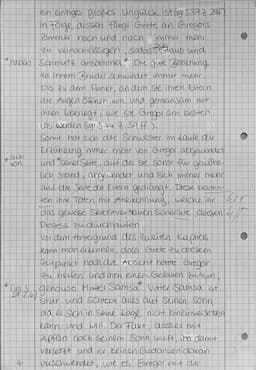 ein einziges großes Unglück ist (vgl. S. 37 Z. 29 f.)
In Folge dessen fängt Grete an Gregors
Zimmer nach und nach immer mehr
zu vernachlässigen, sodass Staub und
Schmutz ansammel* Die gute Beziehung
* haben
zu ihrem Bruder schwindet immer mehr,
bis zu dem Punkt, an dem sie ihren Eltern
die Augen öffnen will und gemeinsam mit
ihnen überlegt, wie sie Gregor am besten
los werden (vgl. S. Z. 34 ff.).
Somit hat sich die Schwester im Laufe der
Erzählung immer mehr von Gregor abgewendet
* sich von
und * seiner Seite, auf der sie sonst für gewöhn-
lich stand, abgewendet und sich immer mehr
auf die Seite der Eltern gedrängt. Diese
ihre Taten mit Anerkennung, welche ihr
das gewisse Selbstvertrauen schenkte diesen
Prozess zu durchlaufen
Vor dem Hintergrund des zweiten Kapitels
kann man erkennen, dass Grete zu diesem
Zeitpunkt noch die Absicht hatte Gregor
zu helfen und ihm einen Gefallen zu tun,
genauso Mutter Samsa* Vater Samsa ist
* (vgl. S.
stur und schiebt alles auf seinen Sohn,
da er sich in seine Lage nicht hineinversetzen
kann und will. Der Fakt, dass er mit
Äpfeln nach seinem Sohn wirft, ihn damit
verletzt und er keinen Gedanken daran
verschwendet, wie es Gregor mit der